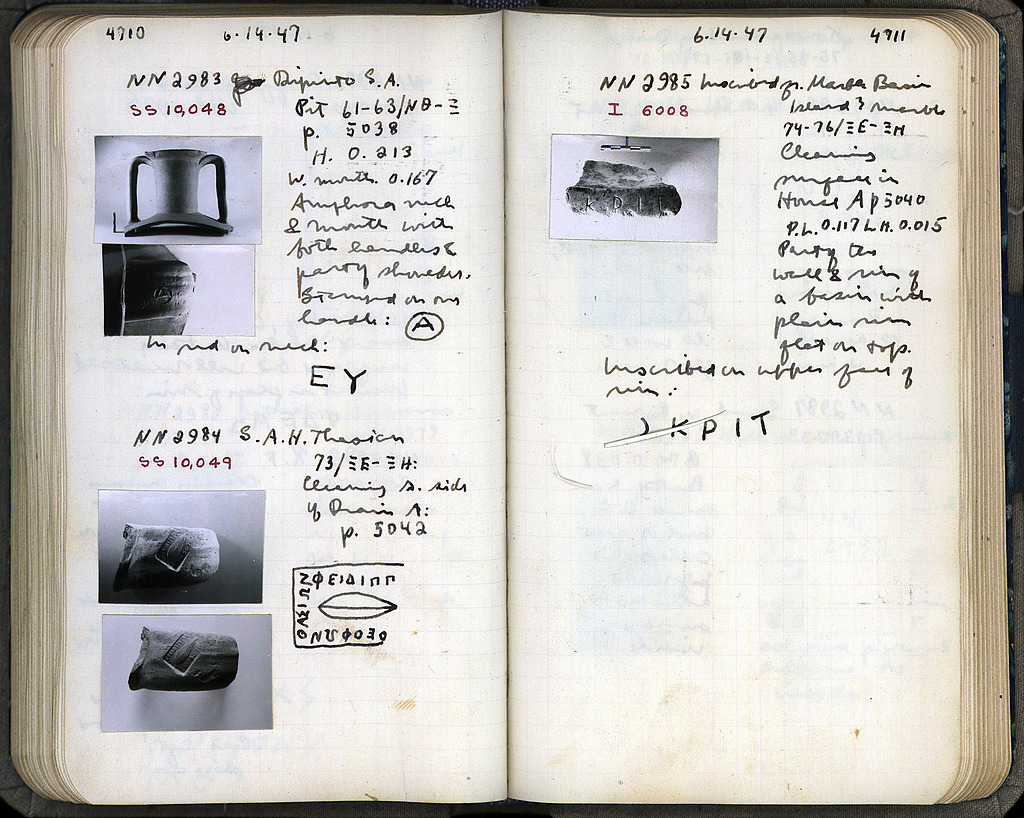 4710 6.14.47
NN 2983 Dipinto S.A.
SS 10,048
Pit 61-63/ΝΘ-Ξ
p. 5038
H. 0.213
W. mouth. 0.167
Amphora neck
& mouth with
both handles &
part of shoulder.
Stamped on one
handle: A
In red on neck:
EY
NN 2984 S.A.H. Thasian
SS 10,049
73/ΞΕ-ΞΗ:
Cleaning S. side
of Drain A:
p. 5042
ΦΕΙΔΙΠΠ
ΘΑΣΙΩΝ
ΘΕΟΦΩΝ
6.14.47 4711
NN 2985 Inscribed fr. Marble Basin
I 6008
Island marble
74-76/ΞΕ-ΞΗ
Cleaning
surface in
House A p 5040
P.L. 0.117 L.H. 0.015
Part of the
wall & rim of
a basin with
plain rim
flat on top.
Inscribed on upper face of
rim:
ΚΡΙΤ